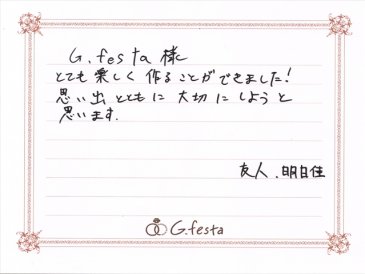 G.festa 様
とても楽しく作ることができました!
思い出とともに大切にしようと
思います.
友人.明日佳
G.festa